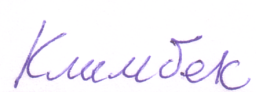 Климбек